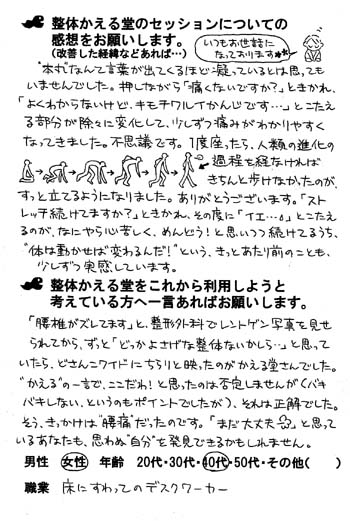 整体かえる堂のセッションについての
感想をお願いします。
(改善した経緯などあれば…)
いつもお世話に
なっております**
"木札"なんて言葉が出てくるほど凝っているとは思っても
いませんでした。押しながら「痛くないですか?」ときかれ、
「よくわからないけど、キモチワルイかんじです…」とこたえ
る部分が除々に変化して、少しずつ痛みがわかりやすく
なってきました。不思議です。1度座ったら、人類の進化の
過程を経なければ
きちんと歩けなかったのが、
すっと立てるようになりました。ありがとうございます。「スト
レッチ続けてますか?」ときかれ、その度に「イエ…。」とこたえ
るのが、なにやら心苦しく、めんどう!と思いつつ続けてるうち、
"体は動かせば変わるんだ!"という、きっとあたり前のことも、
少しずつ実感しています。
整体かえる堂をこれから利用しようと
考えている方へ一言あればお願いします。
「腰椎がズレてます」と、整形外科でレントゲン写真を見せ
られてから、ずっと「どっかよさげな整体ないかしら…」と思って
いたら、どさんこワイドにちらりと映ったのがかえる堂さんでした。
"かえる"の一言で、ここだわ!と思ったのは否定しませんが(バキ
バキしない、というのもポイントでしたが)、それは正解でした。
そう、きっかけは"腰痛"だったのです。「まだ大丈夫」と思って
いるあなたも、思わぬ"自分"を発見できるかもしれません。
男性 女性 年齢 20代・30代・40代・50代・その他( )
職業 床にすわってのデスクワーカー